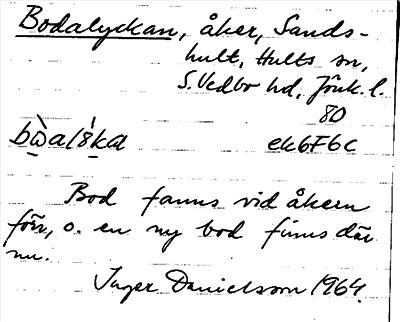 Bodalyckan, åker, Sands-
hult, Hults sn,
S. Vedbo hd, Jönk. l.
80
ek6F6c
Bod fanns vid åkern
förr, o. en ny bod finns där
nu.
Inger Danielsson 1964.